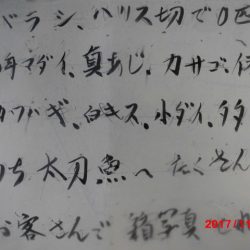 バラシ、ハリス切で0匹
マダイ、真あじ、カサゴ、
ワハギ、白キス、小ダイ、多
うち太刀魚へたくさん
お客さんで箱写真
2017/11